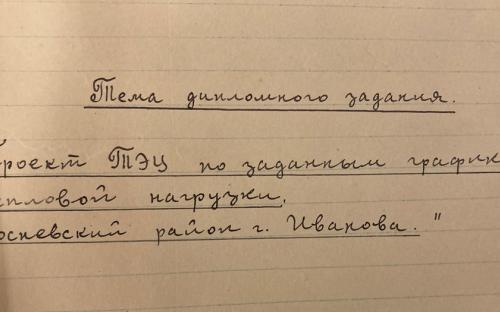 Тема дипломного задания.
роект ТЭЦ по заданным график
епловой нагрузки,
осневский район г. Иванова."